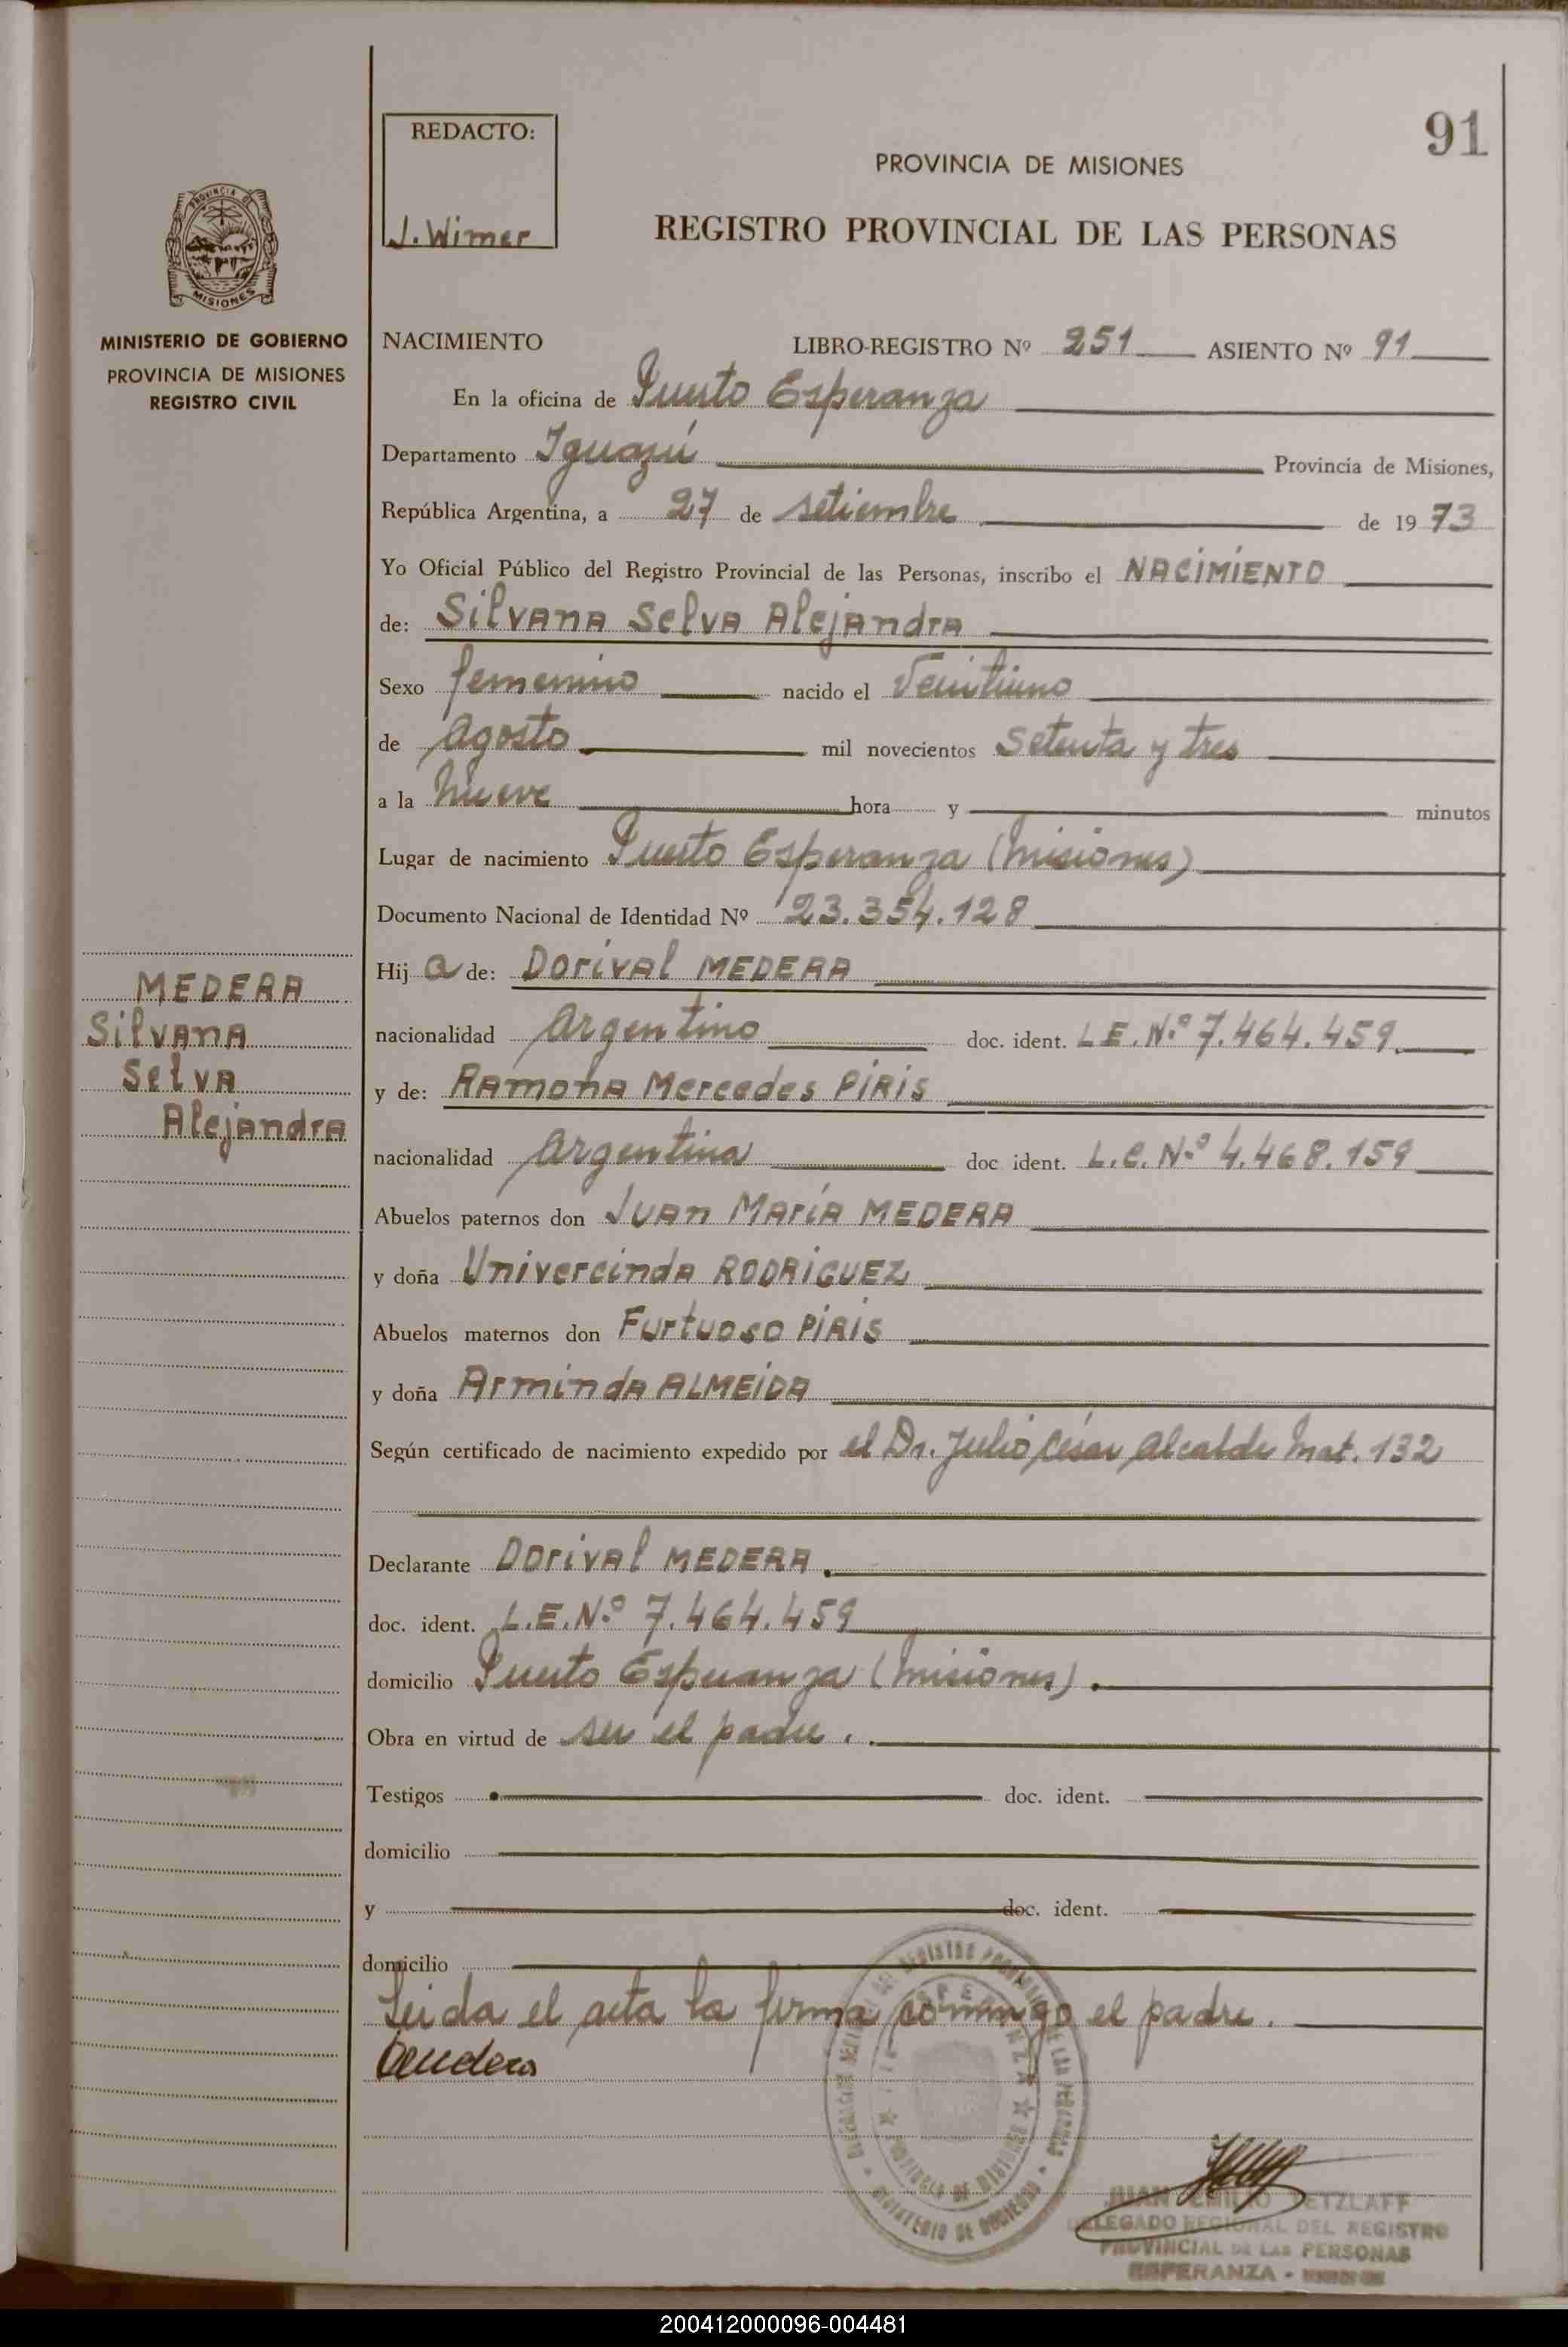 91
REDACTO:
J. Wimer
PROVINCIA DE MISIONES
REGISTRO PROVINCIAL DE LAS PERSONAS
PROVINCIA DE
MISIONES
MINISTERIO DE GOBIERNO
PROVINCIA DE MISIONES
REGISTRO CIVIL
NACIMIENTO LIBRO-REGISTRO Nº 251 ASIENTO Nº 91
En la oficina de Puerto Esperanza
Departamento Iguazú Provincia de Misiones,
República Argentina, a 27 de setiembre de 19 73
Yo Oficial Público del Registro Provincial de las Personas, inscribo el NACIMIENTO
de: Silvana Selva Alejandra
Sexo femenino nacido el Veintiuno
de Agosto mil novecientos Setenta y tres
a la Nueve hora y minutos
Lugar de nacimiento Puerto Esperanza (Misiones)
Documento Nacional de Identidad Nº 23.354.128
Hij a de: Dorival MEDERA
MEDERA
Silvana
Selva
Alejandra
nacionalidad Argentino doc. ident. L.E. N.º 7.464.459
y de: Ramona Mercedes PIRIS
nacionalidad Argentina doc ident. L.C. N.º 4.468.159
Abuelos paternos don Juan María MEDERA
y doña Univercinda RODRIGUEZ
Abuelos maternos don Furtuoso PIRIS
y doña Arminda ALMEIDA
Según certificado de nacimiento expedido por el Dr. Julio César Alcalde Mat. 132
Declarante Dorival MEDERA.
doc. ident. L.E.N.º 7.464.459
domicilio Puerto Esperanza (Misiones).
Obra en virtud de ser el padre.
Testigos doc. ident.
domicilio
y doc. ident.
domicilio
Leida el acta la firma conmigo el padre.
JUAN EMILIO RETZLAFF
DELEGADO REGIONAL DEL REGISTRO
PROVINCIAL DE LAS PERSONAS
ESPERANZA - MISIONES
200412000096-004481